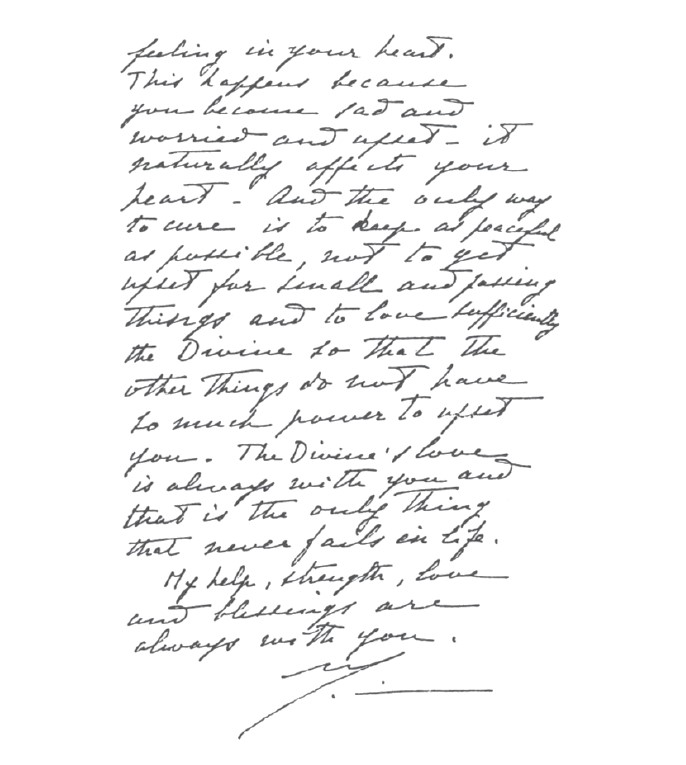 feeling in your heart.
This happens because
you become sad and
worried and upset - it
naturally affects your
heart - And the only way
to cure is to keep as peaceful
as possible, not to get
upset for small and passing
things and to love sufficiently
the Divine so that the
other things do not have
so much power to upset
you. The Divine's love
is always with you and
that is the only thing
that never fails in life.
My help, strength, love
and blessings are
always with you.